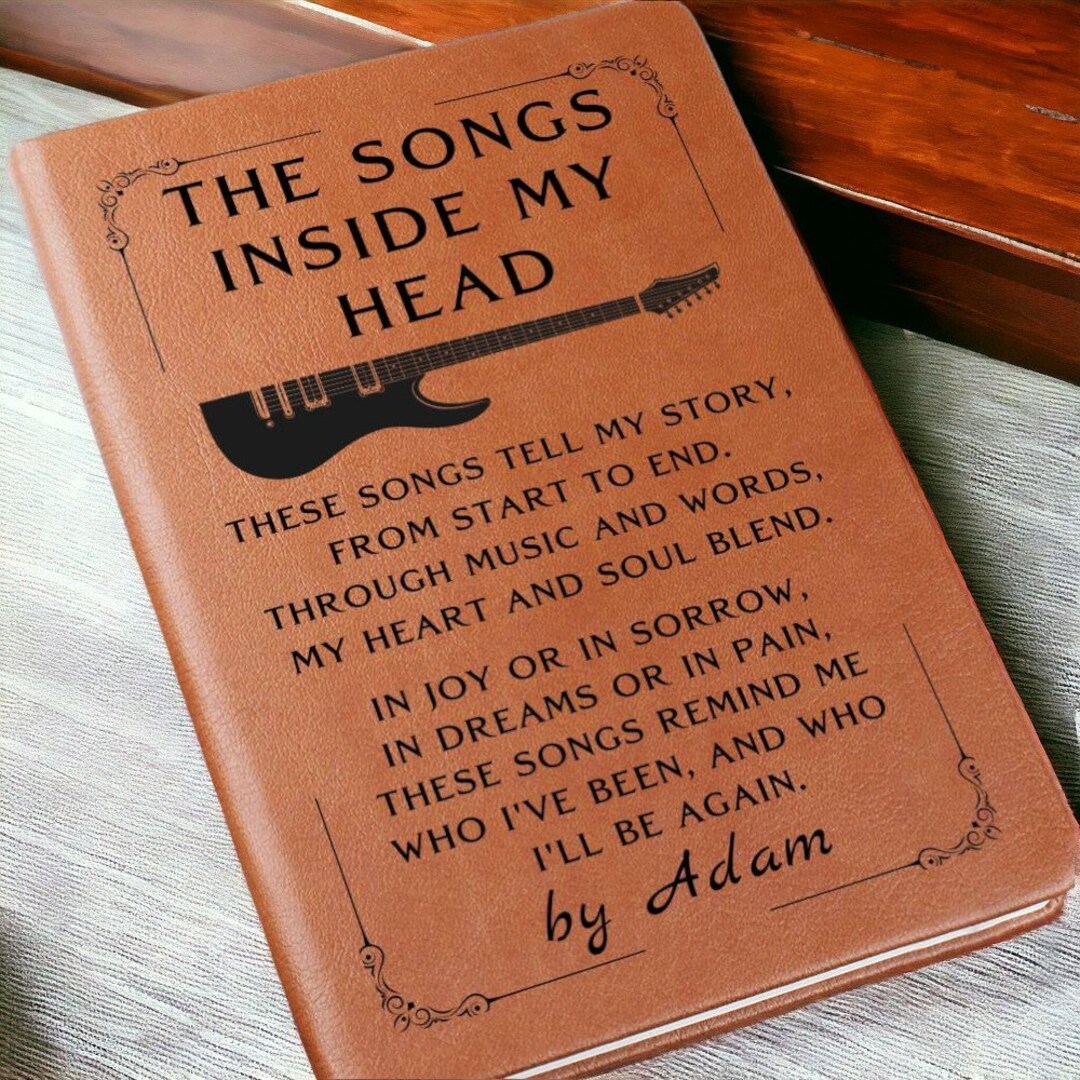 THE SONGS
INSIDE MY
HEAD
THESE SONGS TELL MY STORY,
FROM START TO END.
THROUGH MUSIC AND WORDS,
MY HEART AND SOUL BLEND.
IN JOY OR IN SORROW,
IN DREAMS OR IN PAIN,
THESE SONGS REMIND ME
WHO I'VE BEEN, AND WHO
I'LL BE AGAIN.
by Adam